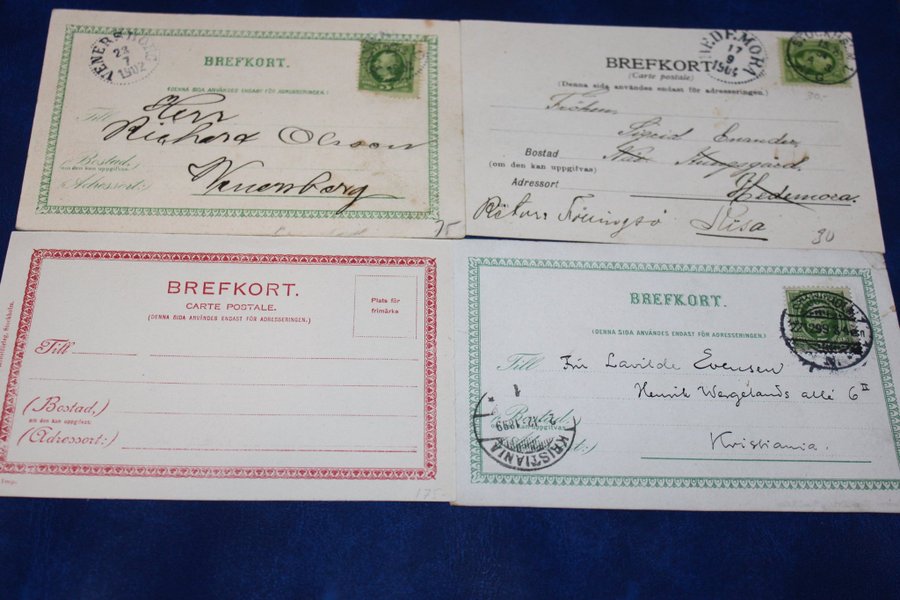 VENERSBORG
23
7
1902
BREFKORT.
(DENNA SIDA ANVÄNDES ENDAST FÖR ADRESSERINGEN.)
Till
Herr
Richard Olsson
(Bostad,)
om den kan uppgifvas
Wenersborg
(Adressort:)
75
HEDEMORA
17
9
1904
BREFKORT
(Carte postale)
(Denna sida användes endast för adresseringen.)
30-
Fröken
Sigrid
Bostad
(om den kan uppgifvas)
Adressort
Hedemora.
Kisa
30
BREFKORT.
CARTE POSTALE.
(DENNA SIDA ANVÄNDES ENDAST FÖR ADRESSERINGEN.)
Plats för
frimärke
Till
(Bostad,)
om den kan uppgifvas:
(Adressort:)
175
BREFKORT.
(DENNA SIDA ANVÄNDES ENDAST FÖR ADRESSERINGEN.)
Till
Frk Lavilde Evensen
Henrik Wergelands allé 6 II
(Bostad,)
om den kan uppgifvas
Kristiania.
KRISTIANIA
1899